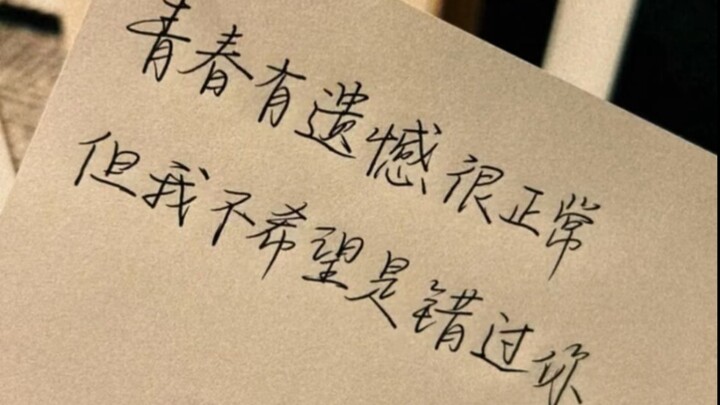 青春有遗憾很正常
但我不希望是错过你